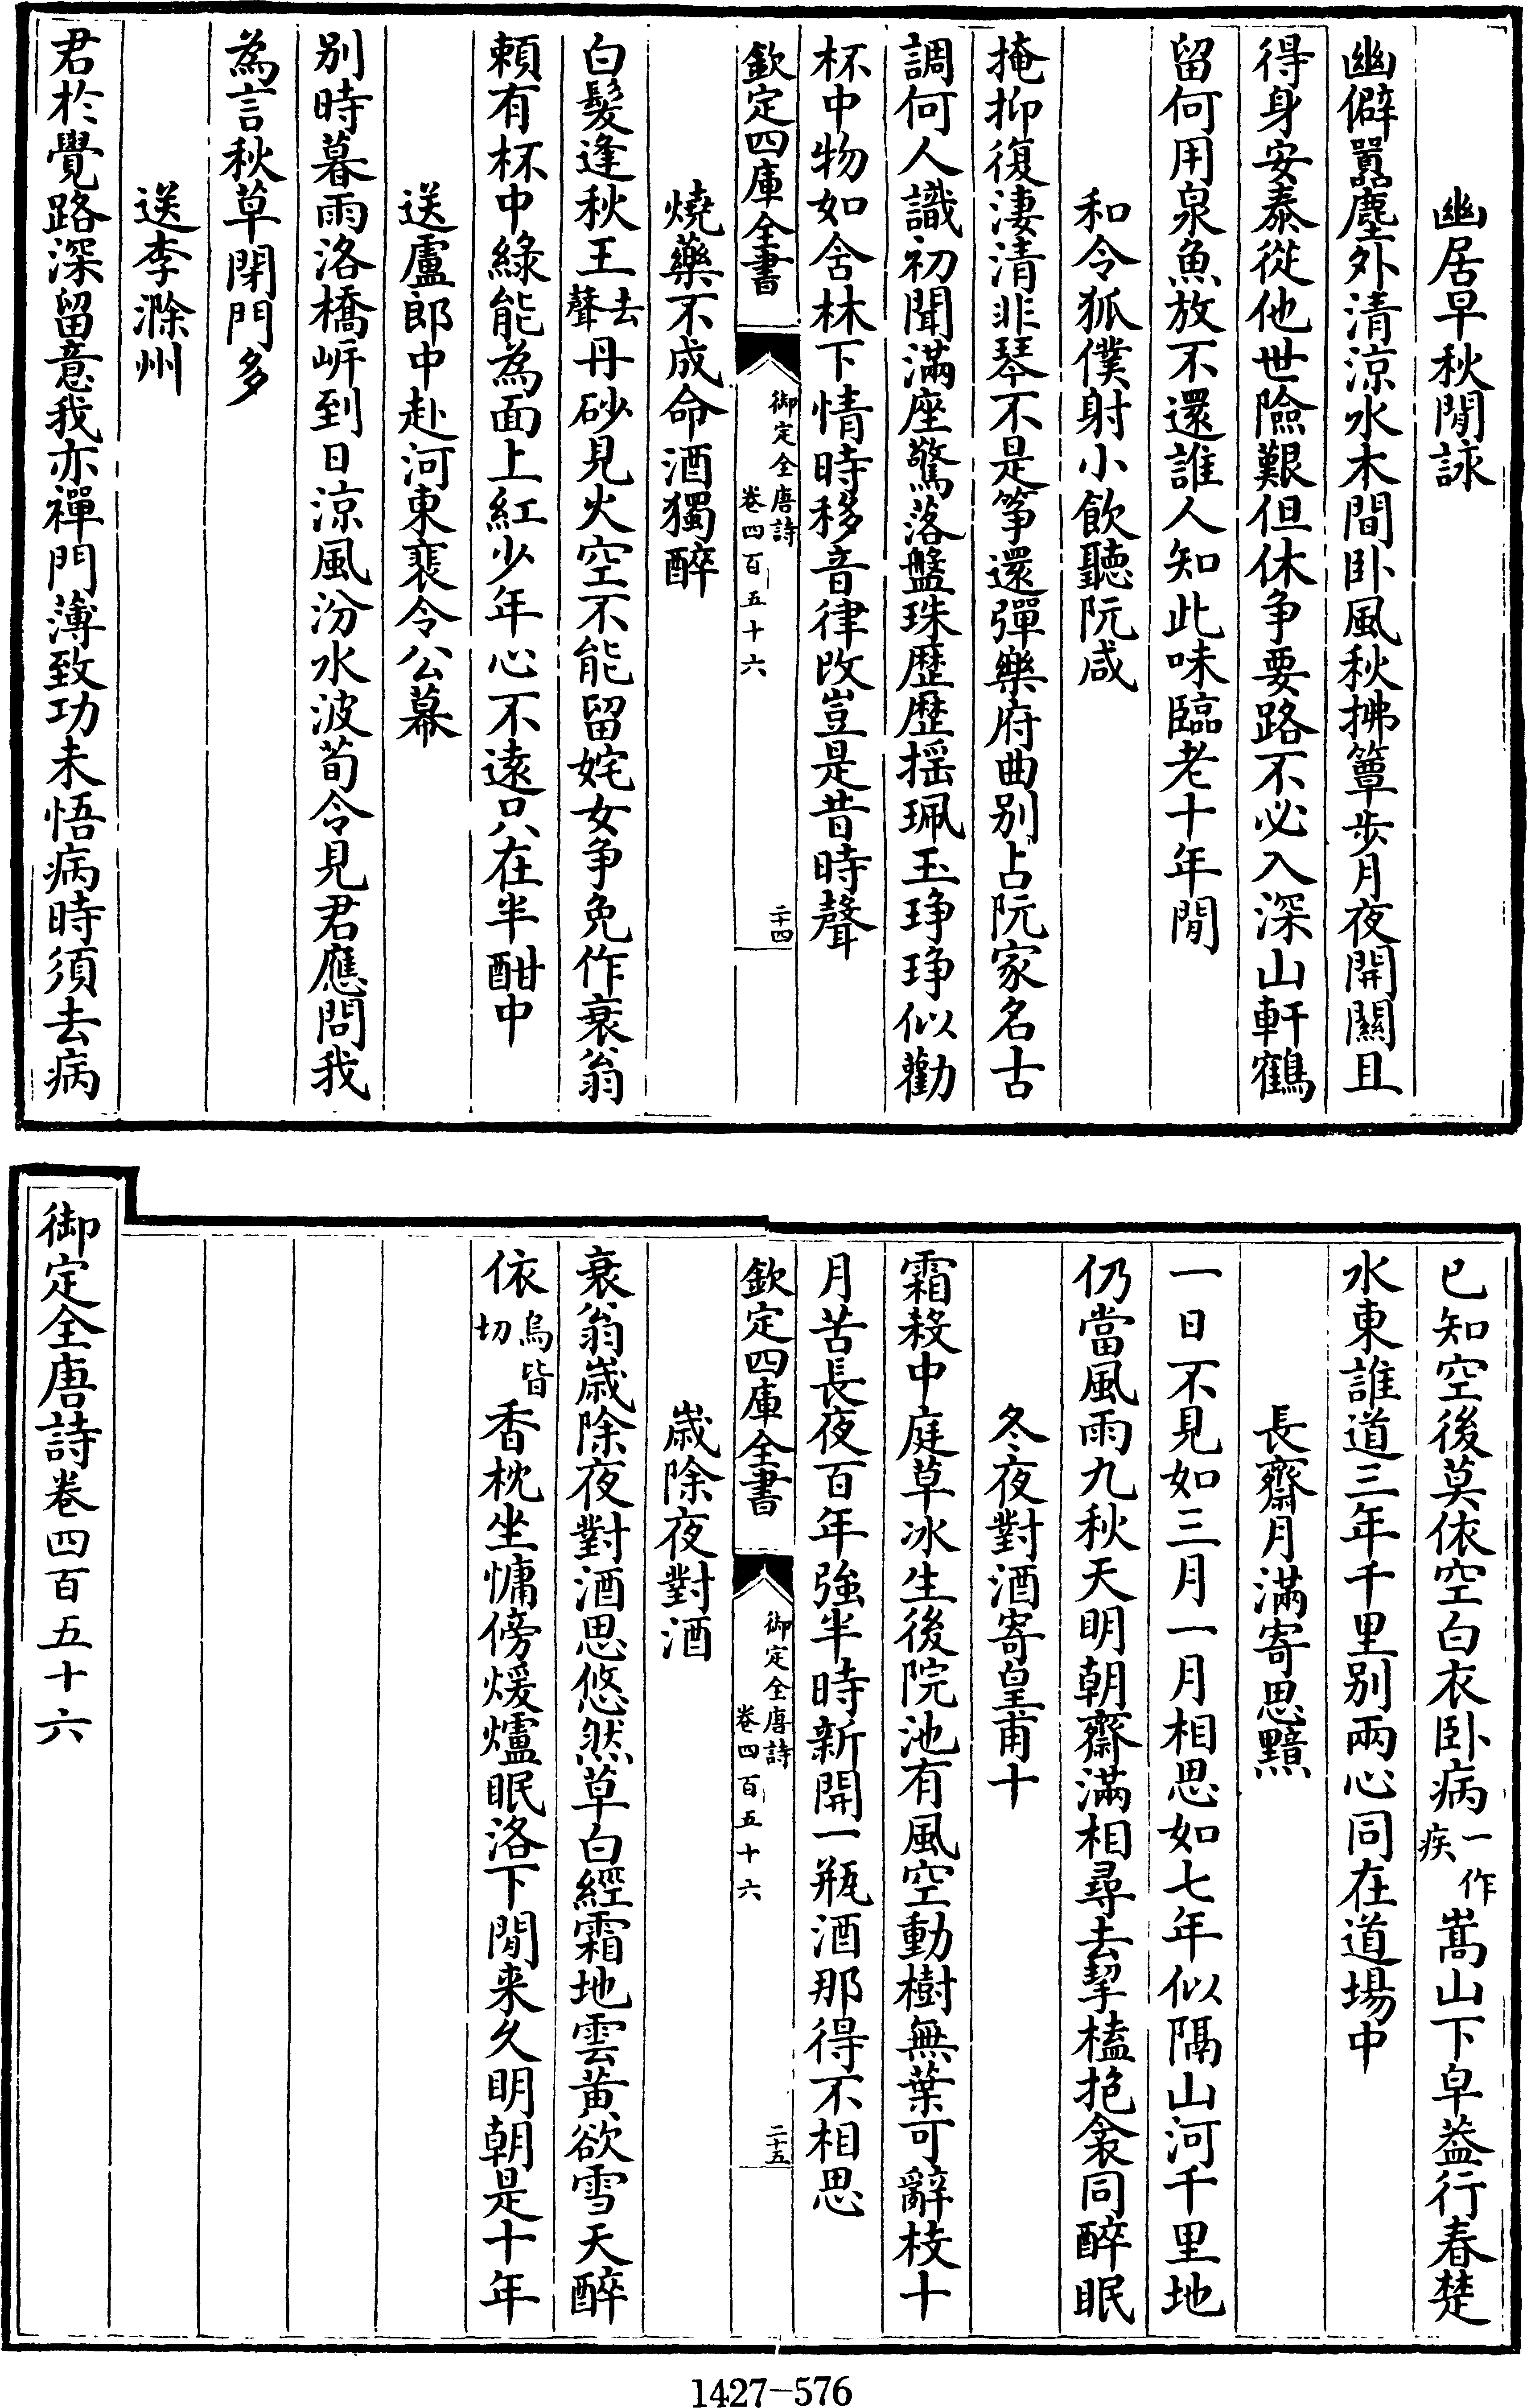 幽居早秋閒詠
幽僻囂塵外清涼水木間卧風秋拂簟步月夜開關且
得身安泰從他世險艱但休争要路不必入深山軒鶴
留何用泉魚放不還誰人知此味臨老十年閒
和令狐僕射小飲聽阮咸
掩抑復淒清非琴不是筝還彈樂府曲别占阮家名古
調何人識初聞滿座驚落盤珠歴歴摇珮玉琤琤似勸
杯中物如含林下情時移音律改豈是昔時聲
欽定四庫全書
御定全唐詩
卷四百五十六
二十四
燒藥不成命酒獨醉
白髪逢秋王去聲丹砂見火空不能留姹女争免作衰翁
頼有杯中綠能為面上紅少年心不逺只在半酣中
送盧郎中赴河東裴令公幕
别時暮雨洛橋岍到日涼風汾水波荀令見君應問我
為言秋草閉門多
送李滁州
君於覺路深留意我亦禪門薄致功未悟病時須去病
已知空後莫依空白衣卧病一作疾嵩山下皁葢行春楚
水東誰道三年千里别兩心同在道場中
長齋月滿寄思黯
一日不見如三月一月相思如七年似隔山河千里地
仍當風雨九秋天明朝齋滿相尋去挈榼抱衾同醉眠
冬夜對酒寄皇甫十
霜殺中庭草冰生後院池有風空動樹無葉可辭枝十
月苦長夜百年強半時新開一瓶酒那得不相思
欽定四庫全書
御定全唐詩
卷四百五十六
二十五
歳除夜對酒
衰翁歳除夜對酒思悠然草白經霜地雲黄欲雪天醉
依烏皆切香枕坐慵傍煖爐眠洛下閒来久明朝是十年
御定全唐詩卷四百五十六
1427-576